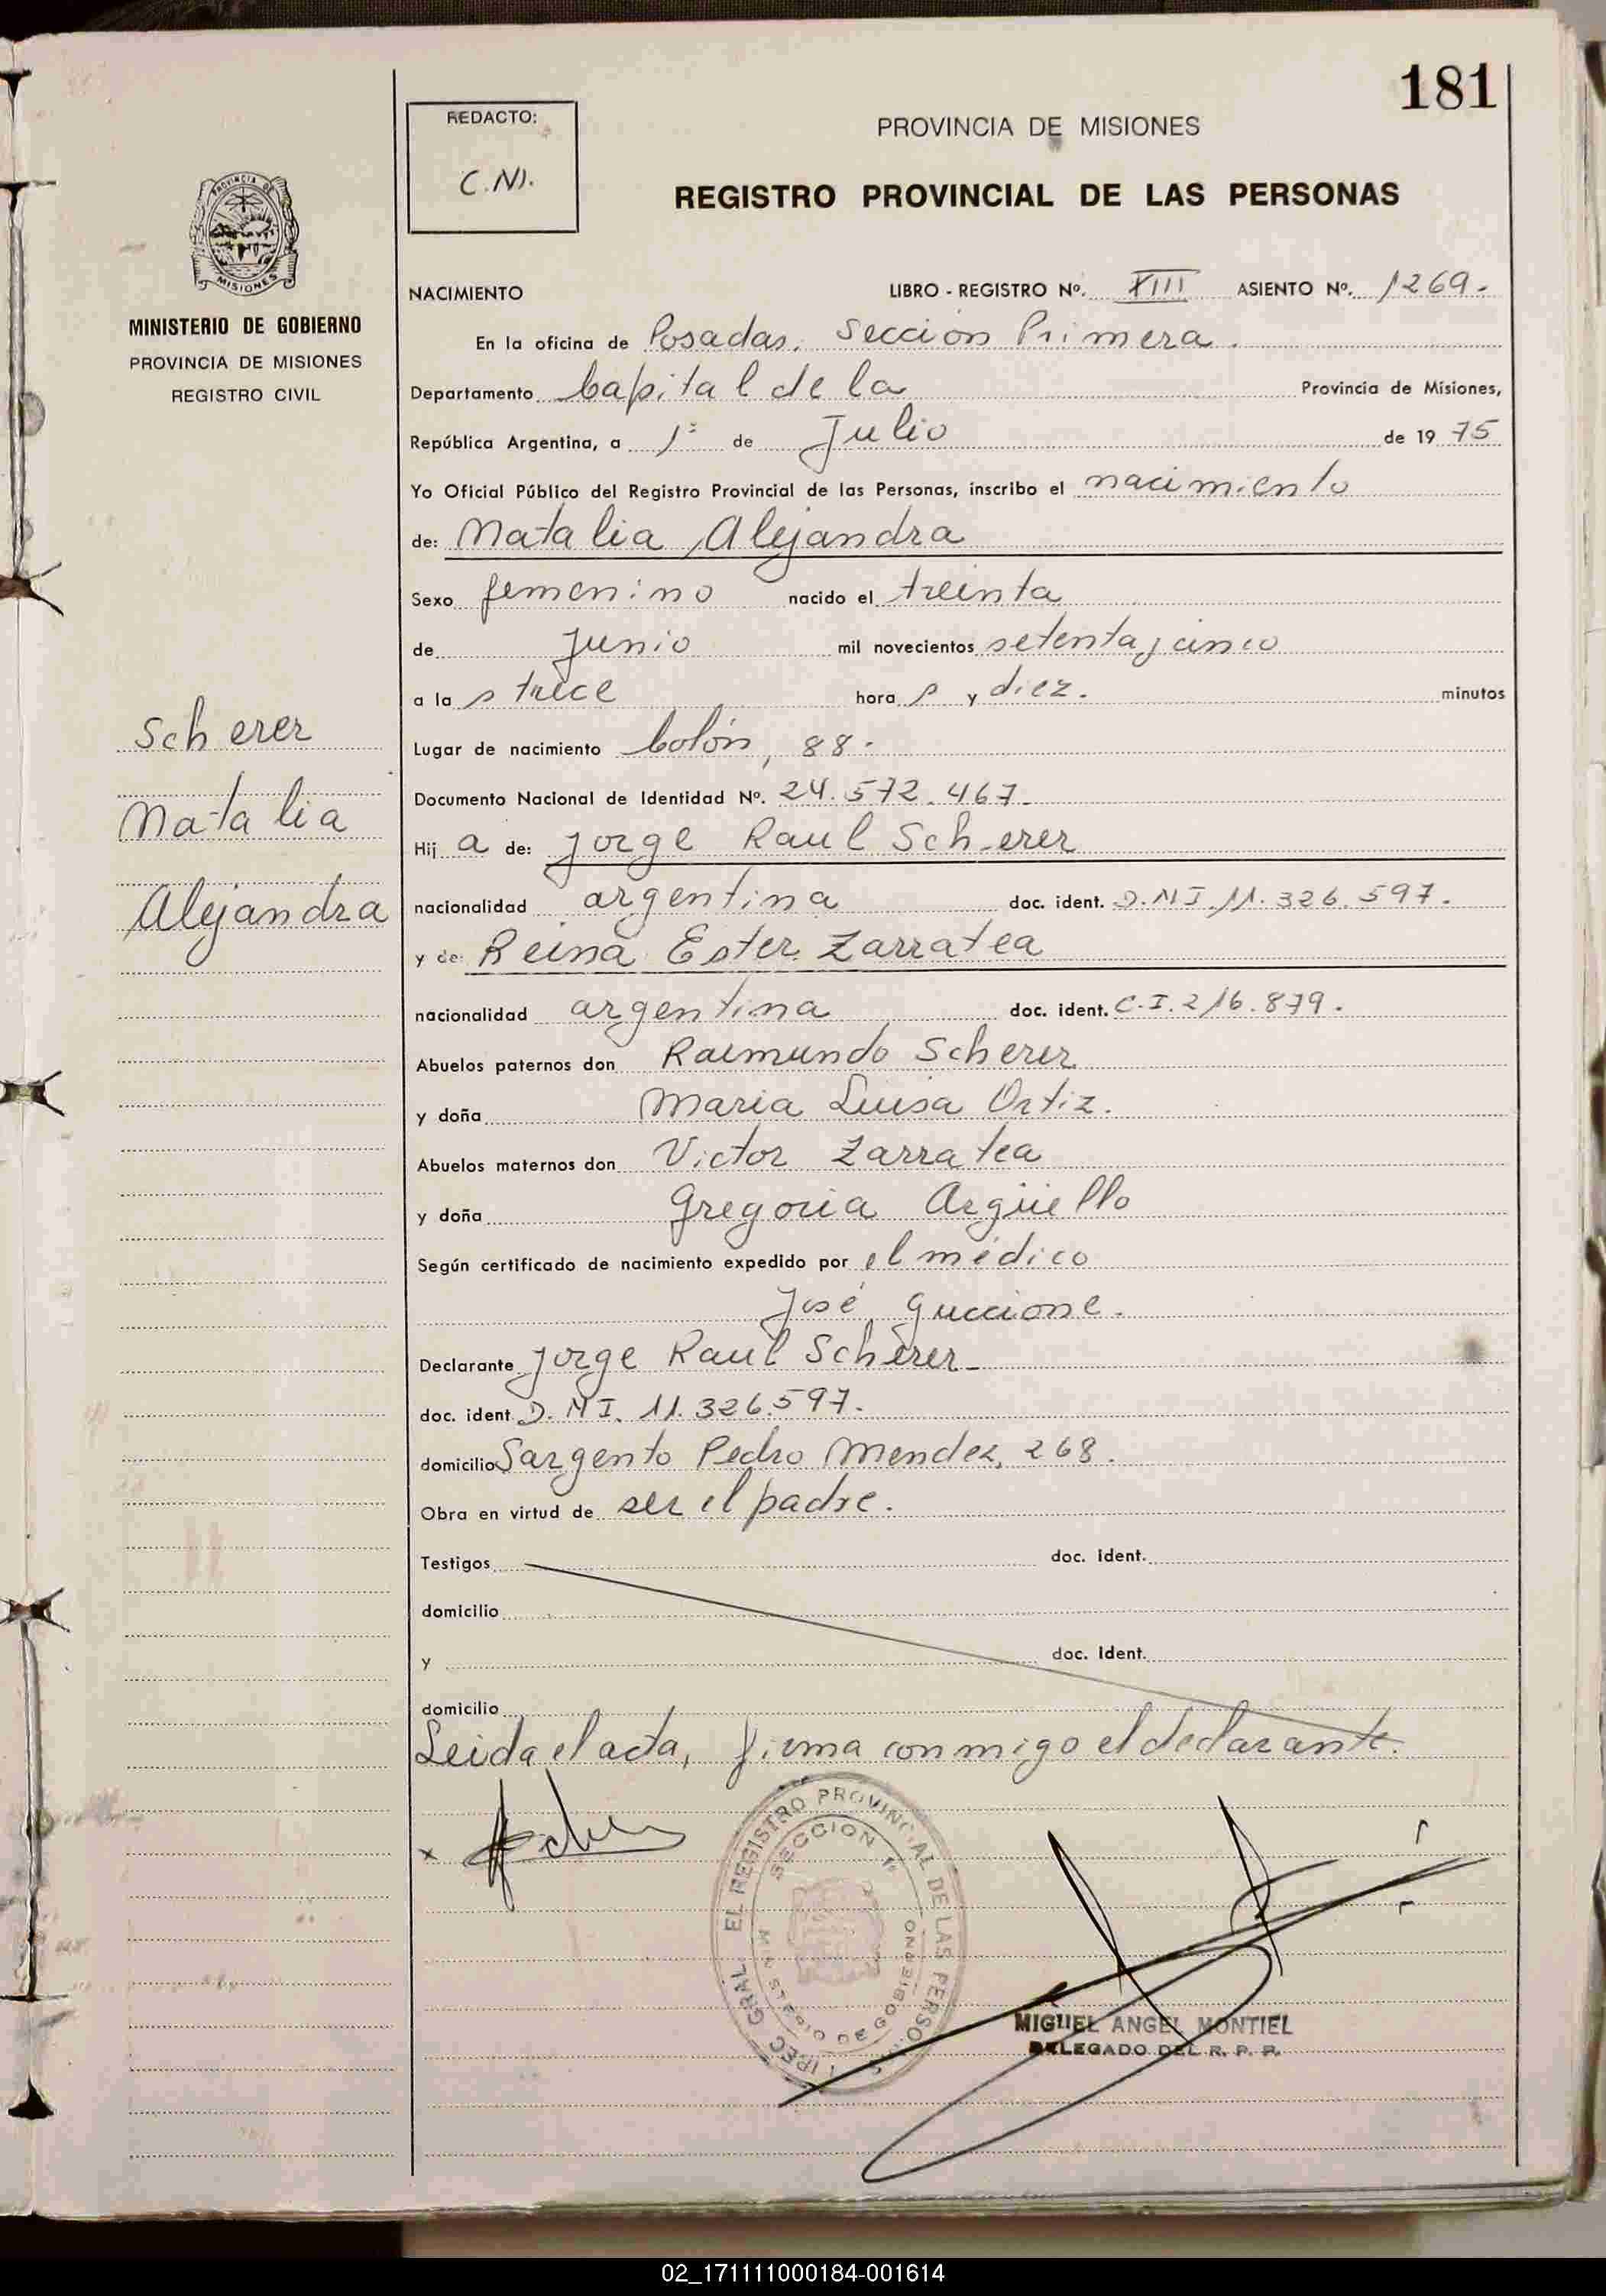 181
REDACTO:
C.N.
PROVINCIA DE MISIONES
REGISTRO PROVINCIAL DE LAS PERSONAS
PROVINCIA DE
MISIONES
MINISTERIO DE GOBIERNO
PROVINCIA DE MISIONES
REGISTRO CIVIL
Scherer
Natalia
Alejandra
NACIMIENTO LIBRO - REGISTRO Nº. XIII ASIENTO Nº. 1269.
En la oficina de Posadas, Sección Primera.
Departamento Capital de la Provincia de Misiones,
República Argentina, a 1º de Julio de 1975
Yo Oficial Público del Registro Provincial de las Personas, inscribo el nacimiento
de: Natalia Alejandra
Sexo femenino nacido el treinta
de Junio mil novecientos setenta y cinco
a la s trece hora s y diez. minutos
Lugar de nacimiento Colón, 88.
Documento Nacional de Identidad Nº. 24.572.467.
Hij a de: Jorge Raul Scherer
nacionalidad argentina doc. ident. D.N.I. 11.326.597.
y de: Reina Ester Zarratea
nacionalidad argentina doc. ident. C.I. 216.879.
Abuelos paternos don Raimundo Scherer
y doña Maria Luisa Ortiz.
Abuelos maternos don Victor Zarratea
y doña Gregoria Argüello
Según certificado de nacimiento expedido por el médico
José Guccione.
Declarante Jorge Raul Scherer
doc. ident. D.N.I. 11.326.597.
domicilio Sargento Pedro Mendez, 268.
Obra en virtud de ser el padre.
Testigos doc. ident.
domicilio
y doc. ident.
domicilio
Leida el acta, firma conmigo el declarante.
EL REGISTRO PROVINCIAL DE LAS PERSO
SECCION 1º
MINISTERIO DE GOBIERNO
MIGUEL ANGEL MONTIEL
DELEGADO DEL R. P. P.
02_171111000184-001614